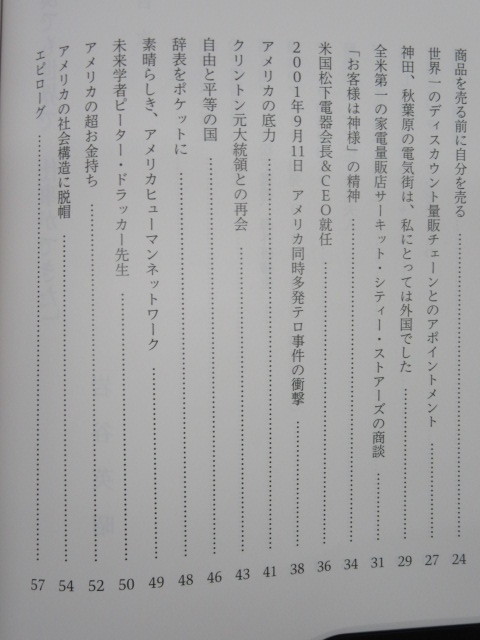 商品を売る前に自分を売る 24
世界一のディスカウント量販チェーンとのアポイントメント 27
神田、秋葉原の電気街は、私にとっては外国でした 29
全米第一の家電量販店サーキット・シティー・ストアーズの商談 31
「お客様は神様」の精神 34
米国松下電器会長&CEO就任 36
2001年9月11日 アメリカ同時多発テロ事件の衝撃 38
アメリカの底力 41
クリントン元大統領との再会 43
自由と平等の国 46
辞表をポケットに 48
素晴らしき、アメリカヒューマンネットワーク 49
未来学者ピーター・ドラッカー先生 50
アメリカの超お金持ち 52
アメリカの社会構造に脱帽 54
エピローグ 57